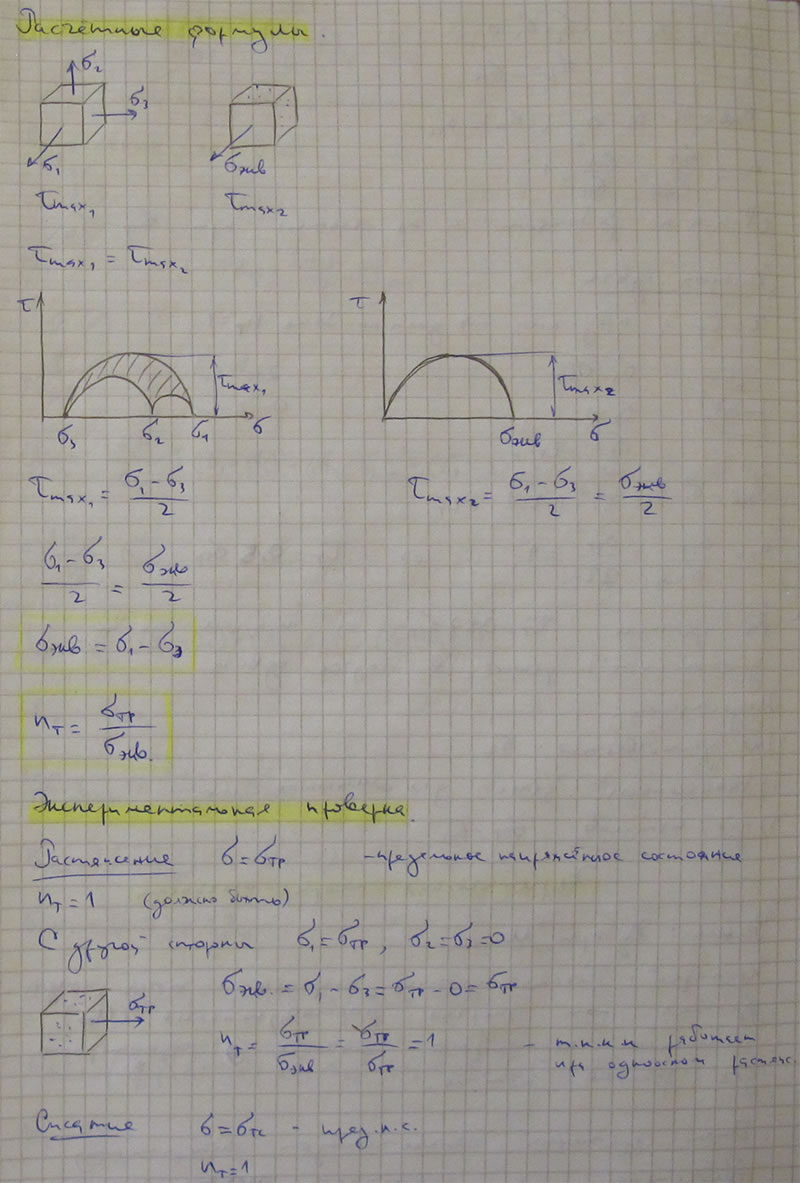 Расчётные формулы.
σ₂
σ₃
σ₁
σэкв
τmax₁
τmax₂
τmax₁ = τmax₂
τ
τmax₁
σ₃ σ₂ σ₁ σ
τ
τmax₂
σэкв σ
τmax₁ = (σ₁ - σ₃)/2
τmax₂ = (σ₁ - σ₃)/2 = σэкв/2
(σ₁ - σ₃)/2 = σэкв/2
σэкв = σ₁ - σ₃
nт = σтр/σэкв.
Экспериментальная проверка.
Растяжение σ = σтр - предельное напряжённое состояние
nт = 1 (должно быть)
С другой стороны σ₁ = σтр, σ₂ = σ₃ = 0
σэкв. = σ₁ - σ₃ = σтр - 0 = σтр
σтр
nт = σтр/σэкв = σтр/σтр = 1 - т.н.м работает
при одноосном растяж.
Сжатие σ = σтс - пред.н.с.
nт = 1